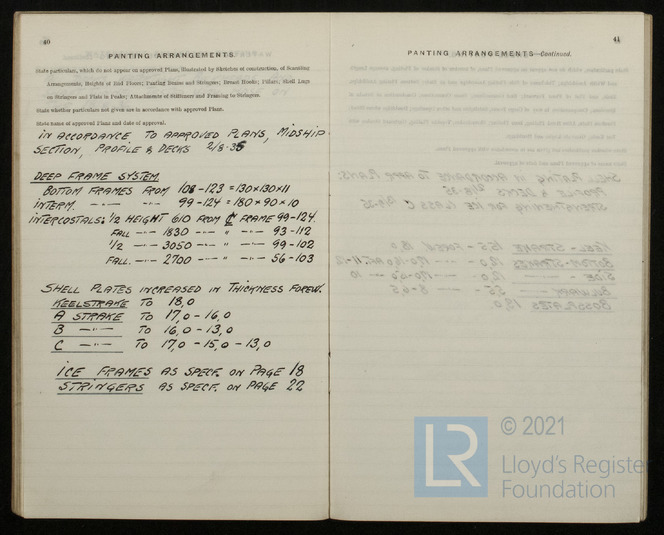 40
PANTING ARRANGEMENTS.
State particulars, which do not appear on approved Plans, illustrated by Sketches of construction, of Scantling
Arrangements, Heights of Bed Floors; Panting Beams and Stringers; Breast Hooks; Pillars; Shell Lugs
on Stringers and Flats in Peaks; Attachments of Stiffeners and Framing to Stringers.
State whether particulars not given are in accordance with approved Plans.
State name of approved Plans and date of approval.
IN ACCORDANCE TO APPROVED PLANS, MIDSHIP-
SECTION, PROFILE & DECKS 2/8-35
DEEP FRAME SYSTEM
BOTTOM FRAMES FROM 108-123 = 130×130×11
INTERM. —"— —"— 99-124 = 180×90×10
INTERCOSTALS: 1/2 HEIGHT 610 FROM ℄ FRAME 99-124
FALL —"— 1830 —"— " —"— 93-112
1/2 —"— 3050 —"— " —"— 99-102
FALL. —"— 2700 —"— " —"— 56-103
SHELL PLATES INCREASED IN THICKNESS FOREW.
KEELSTRAKE TO 18,0
A STRAKE TO 17,0 - 16,0
B —"— TO 16,0 - 13,0
C —"— TO 17,0 - 15,0 - 13,0
ICE FRAMES AS SPECF. ON PAGE 18
STRINGERS AS SPECF. ON PAGE 22
41
PANTING ARRANGEMENTS—Continued.
LR
© 2021
Lloyd's Register
Foundation